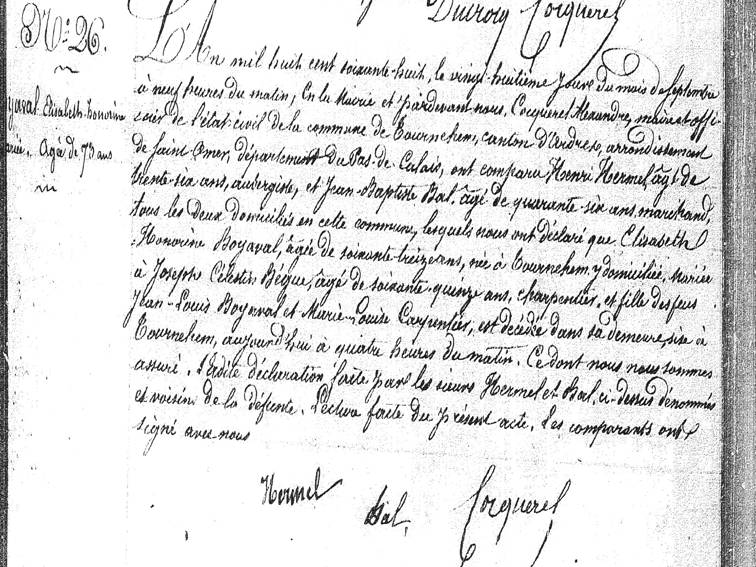 Ducrocq Cocquerel
No: 26.
L'An mil huit cent soixante-huit, le vingt-huitième jour du mois de Septembre
à neuf heures du matin, En la Mairie et pardevant nous, Cocquerel Alexandre, maire et offi-
cier de l'état-civil de la commune de Tournehem, canton d'Ardres, arrondissement
de Saint Omer, département du Pas-de-Calais, ont comparu Henri Hermel, âgé de
trente-six ans, aubergiste, et Jean-Baptiste Bal, âgé de quarante-six ans, marchand,
tous les deux domiciliés en cette commune, lesquels nous ont déclaré que Elisabeth
Honorine Boyaval, âgée de soixante-treize ans, née à Tournehem, y domiciliée, mariée
à Joseph Célestin Bégue, âgé de soixante-quinze ans, charpentier, et fille des feus
Jean-Louis Boyaval et Marie-Louise Carpentier, est décédée dans sa demeure sise à
Tournehem, aujourd'hui à quatre heures du matin. Ce dont nous nous sommes
assuré. Ladite déclaration faite par les sieurs Hermel et Bal, ci-dessus dénommés
et voisins de la défunte. Lecture faite du présent acte, les comparants ont
signé avec nous
yaval Elisabeth-honorine
ariée. Agée de 73 ans
Hermel Bal, Cocquerel